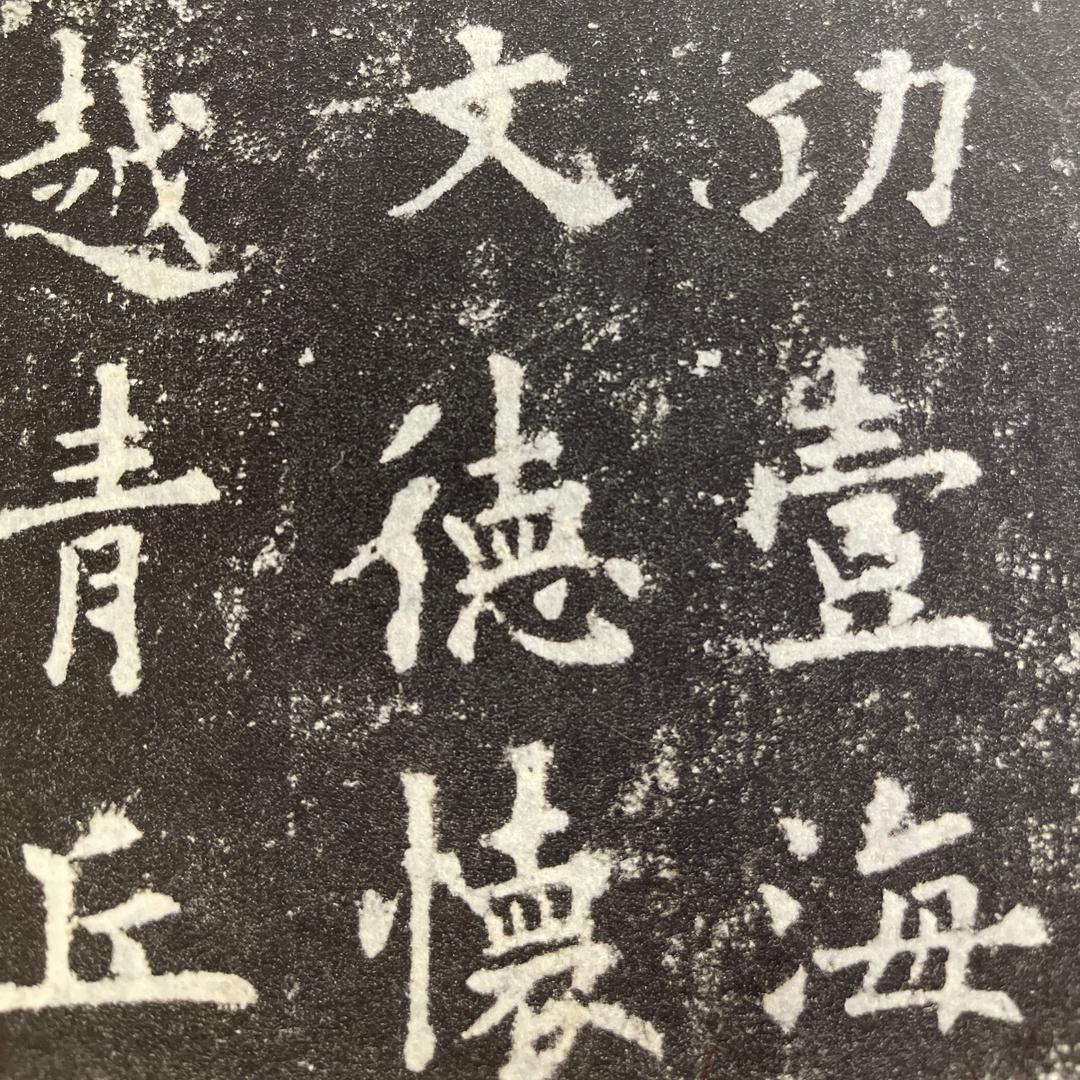 功壹海
文德懷
越青丘